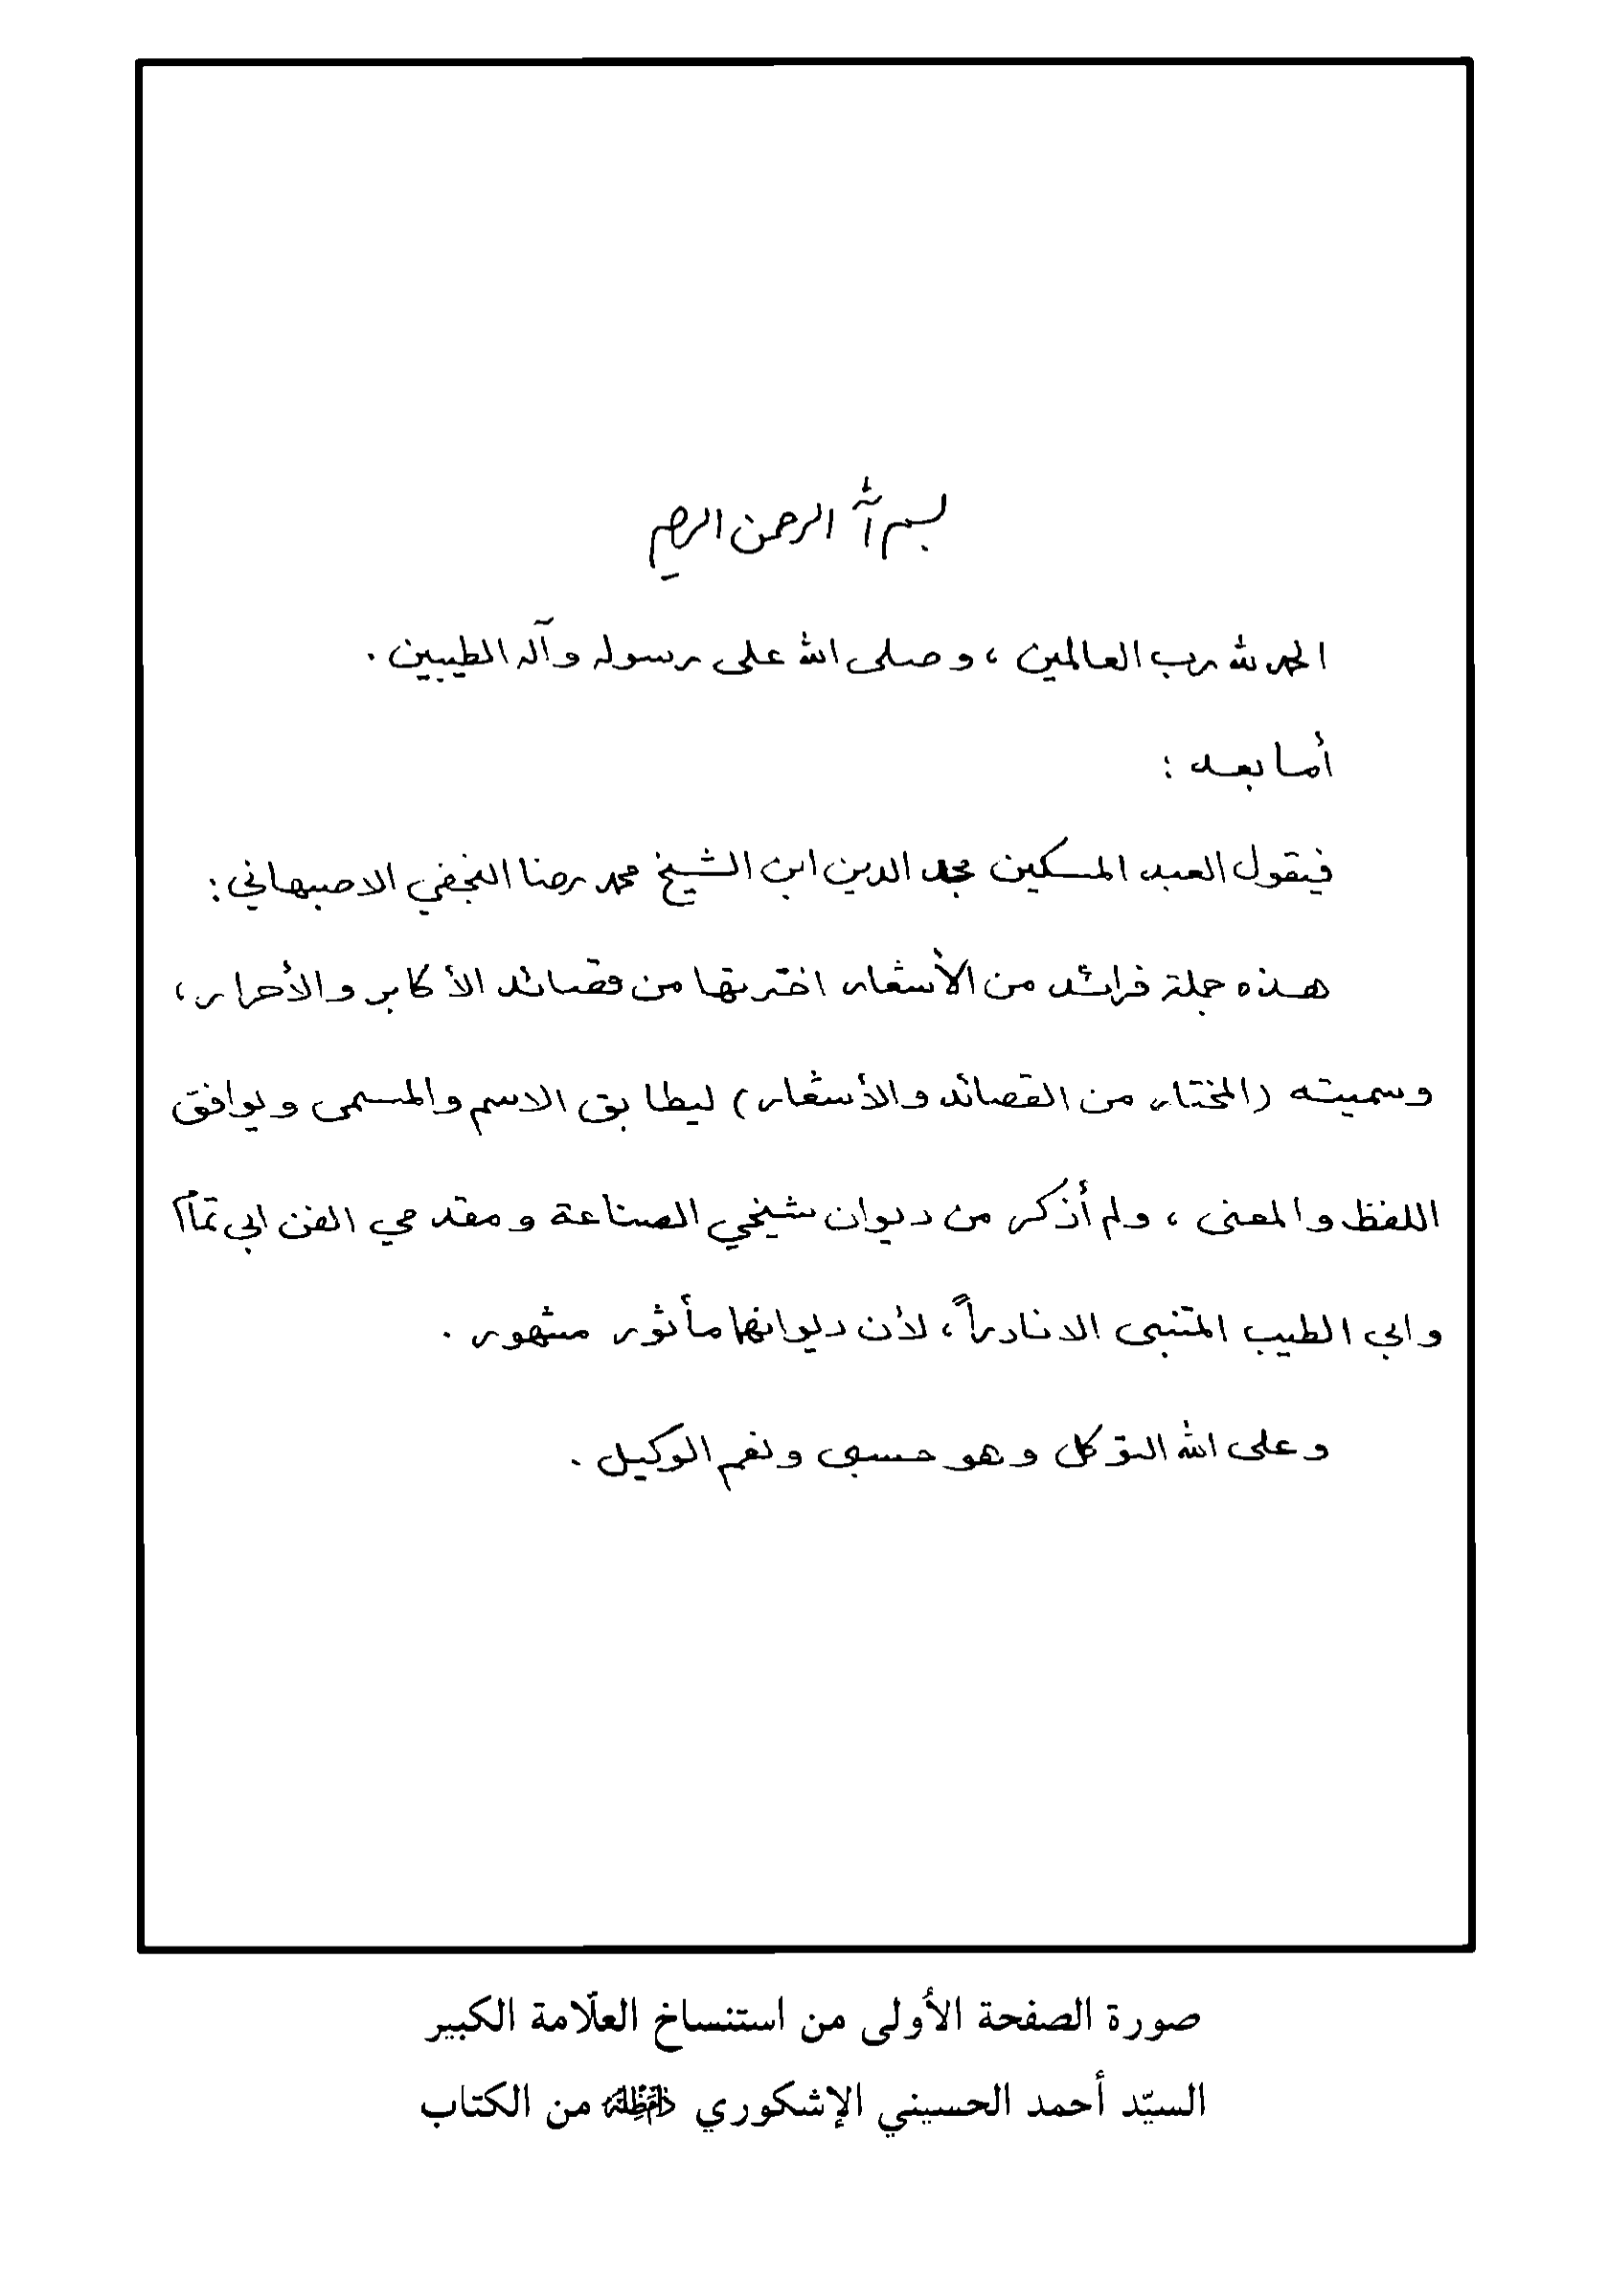 بسم الله الرحمن الرحيم
الحمد لله رب العالمين ، وصلى الله على رسوله وآله الطيبين .
أما بعد :
فيقول العبد المسكين مجد الدين ابن الشيخ محمد رضا النجفي الاصبهاني :
هذه جملة فرائد من الأشعار اخترتها من قصائد الأكابر والأحرار ،
وسميته (المختار من القصائد والأشعار) ليطابق الاسم والمسمى ويوافق
اللفظ والمعنى ، ولم أذكر من ديوان شيخي الصناعة ومقدمي الفن ابي تمام
وابي الطيب المتنبي الا نادراً ، لأن ديوانهما مأثور مشهور .
وعلى الله التوكل وهو حسبي ونعم الوكيل .
صورة الصفحة الأولى من استنساخ العلّامة الكبير
السيّد أحمد الحسيني الإشكوري دام ظله من الكتاب